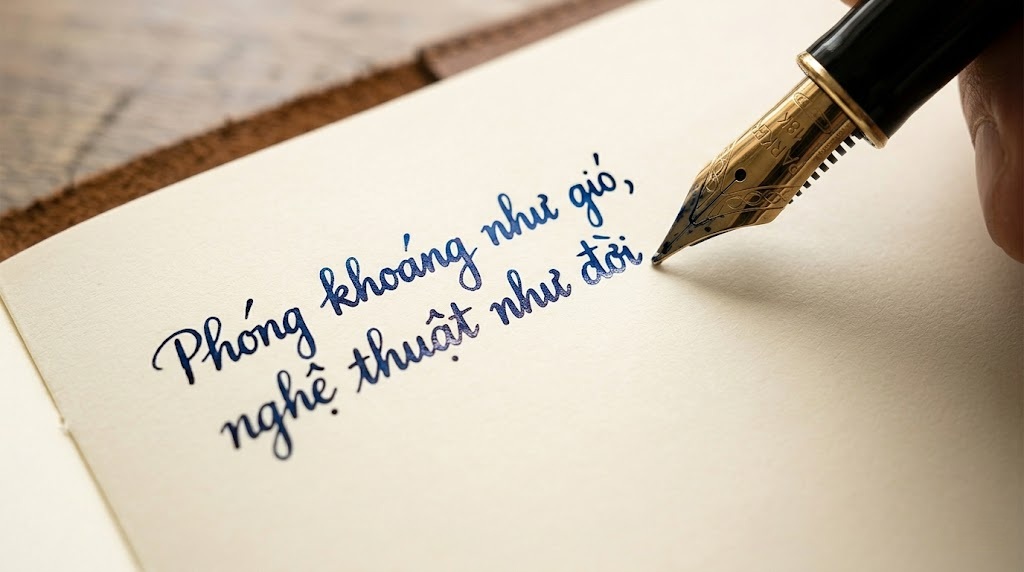 Phóng khoáng như gió,
nghệ thuật như đời
PARKER
18K